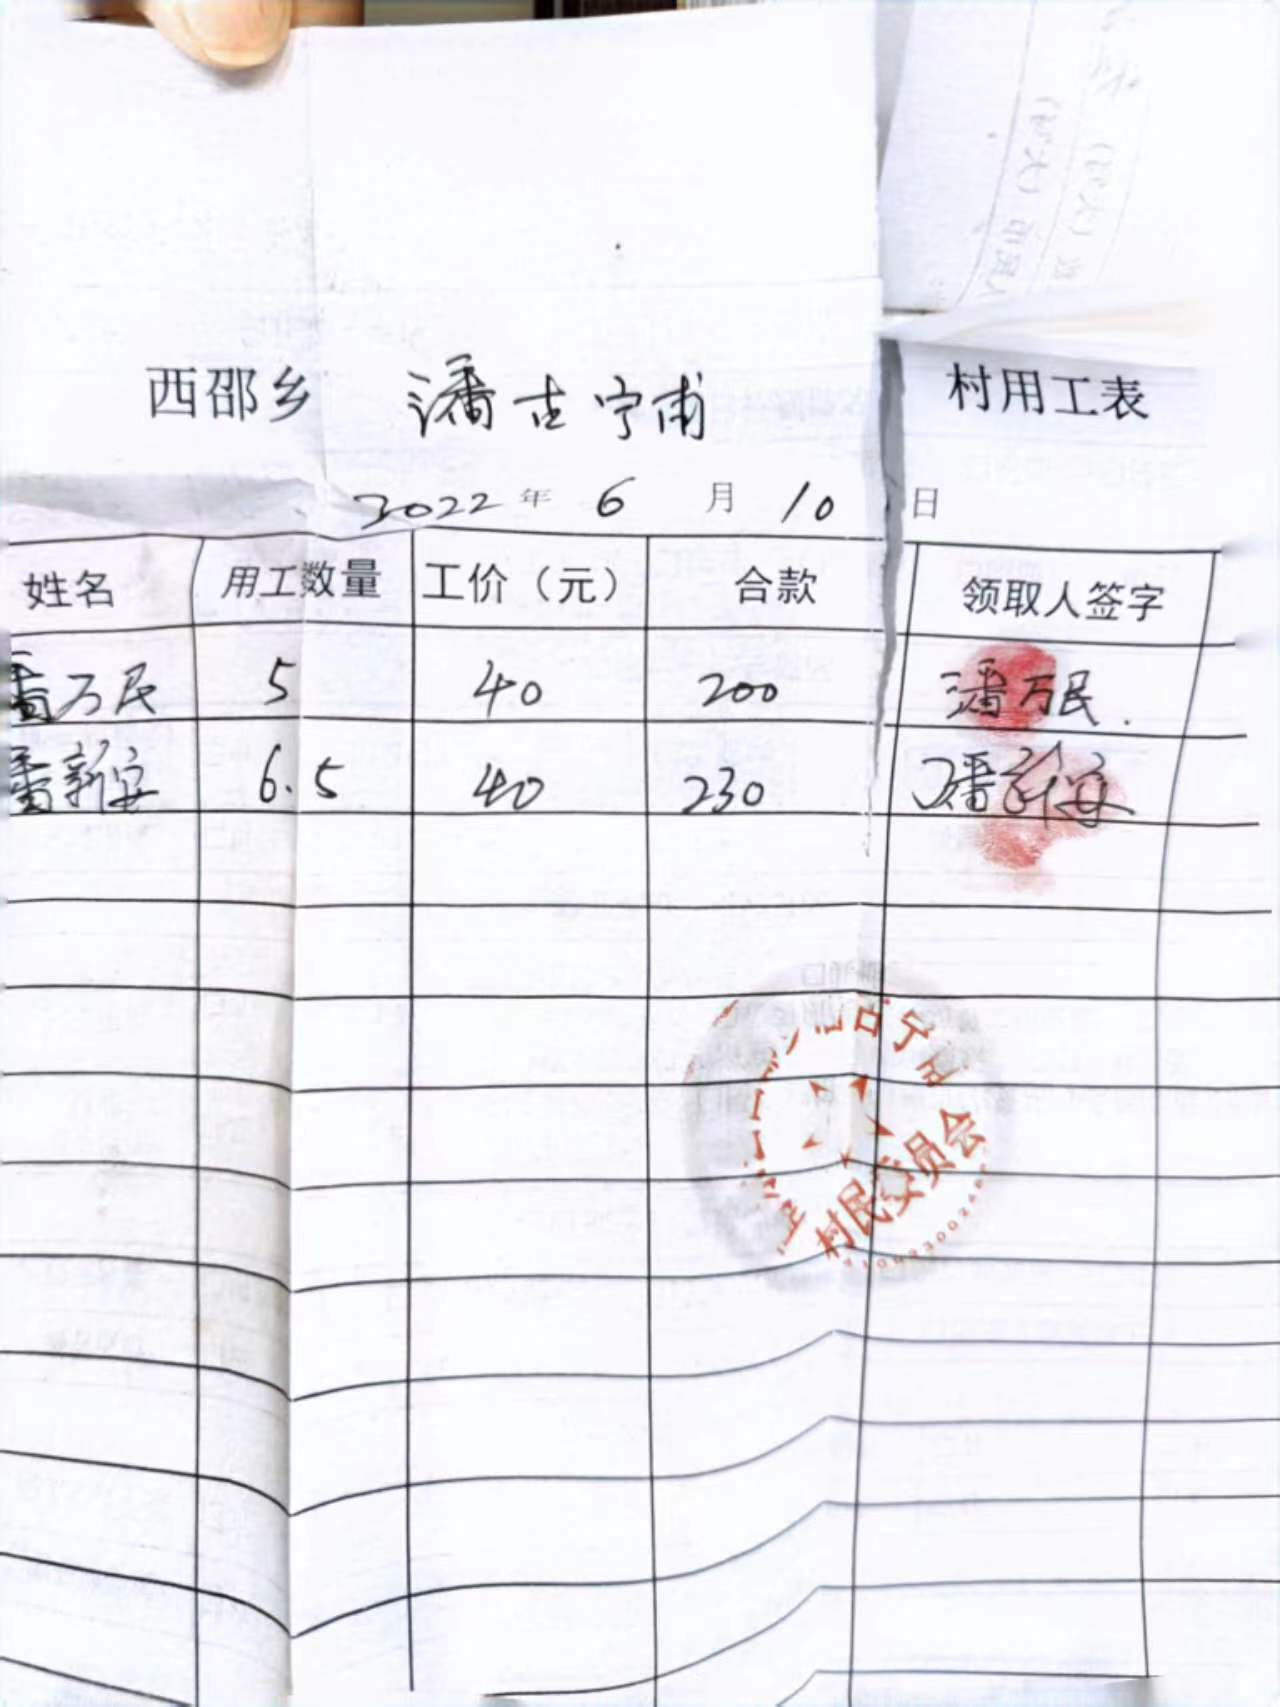 西邵乡 潘古宁甫 村用工表
2022 年 6 月 10 日
姓名 用工数量 工价（元） 合款 领取人签字
潘万民 5 40 200 潘万民.
潘新安 6.5 40 230 潘新安
村民委员会